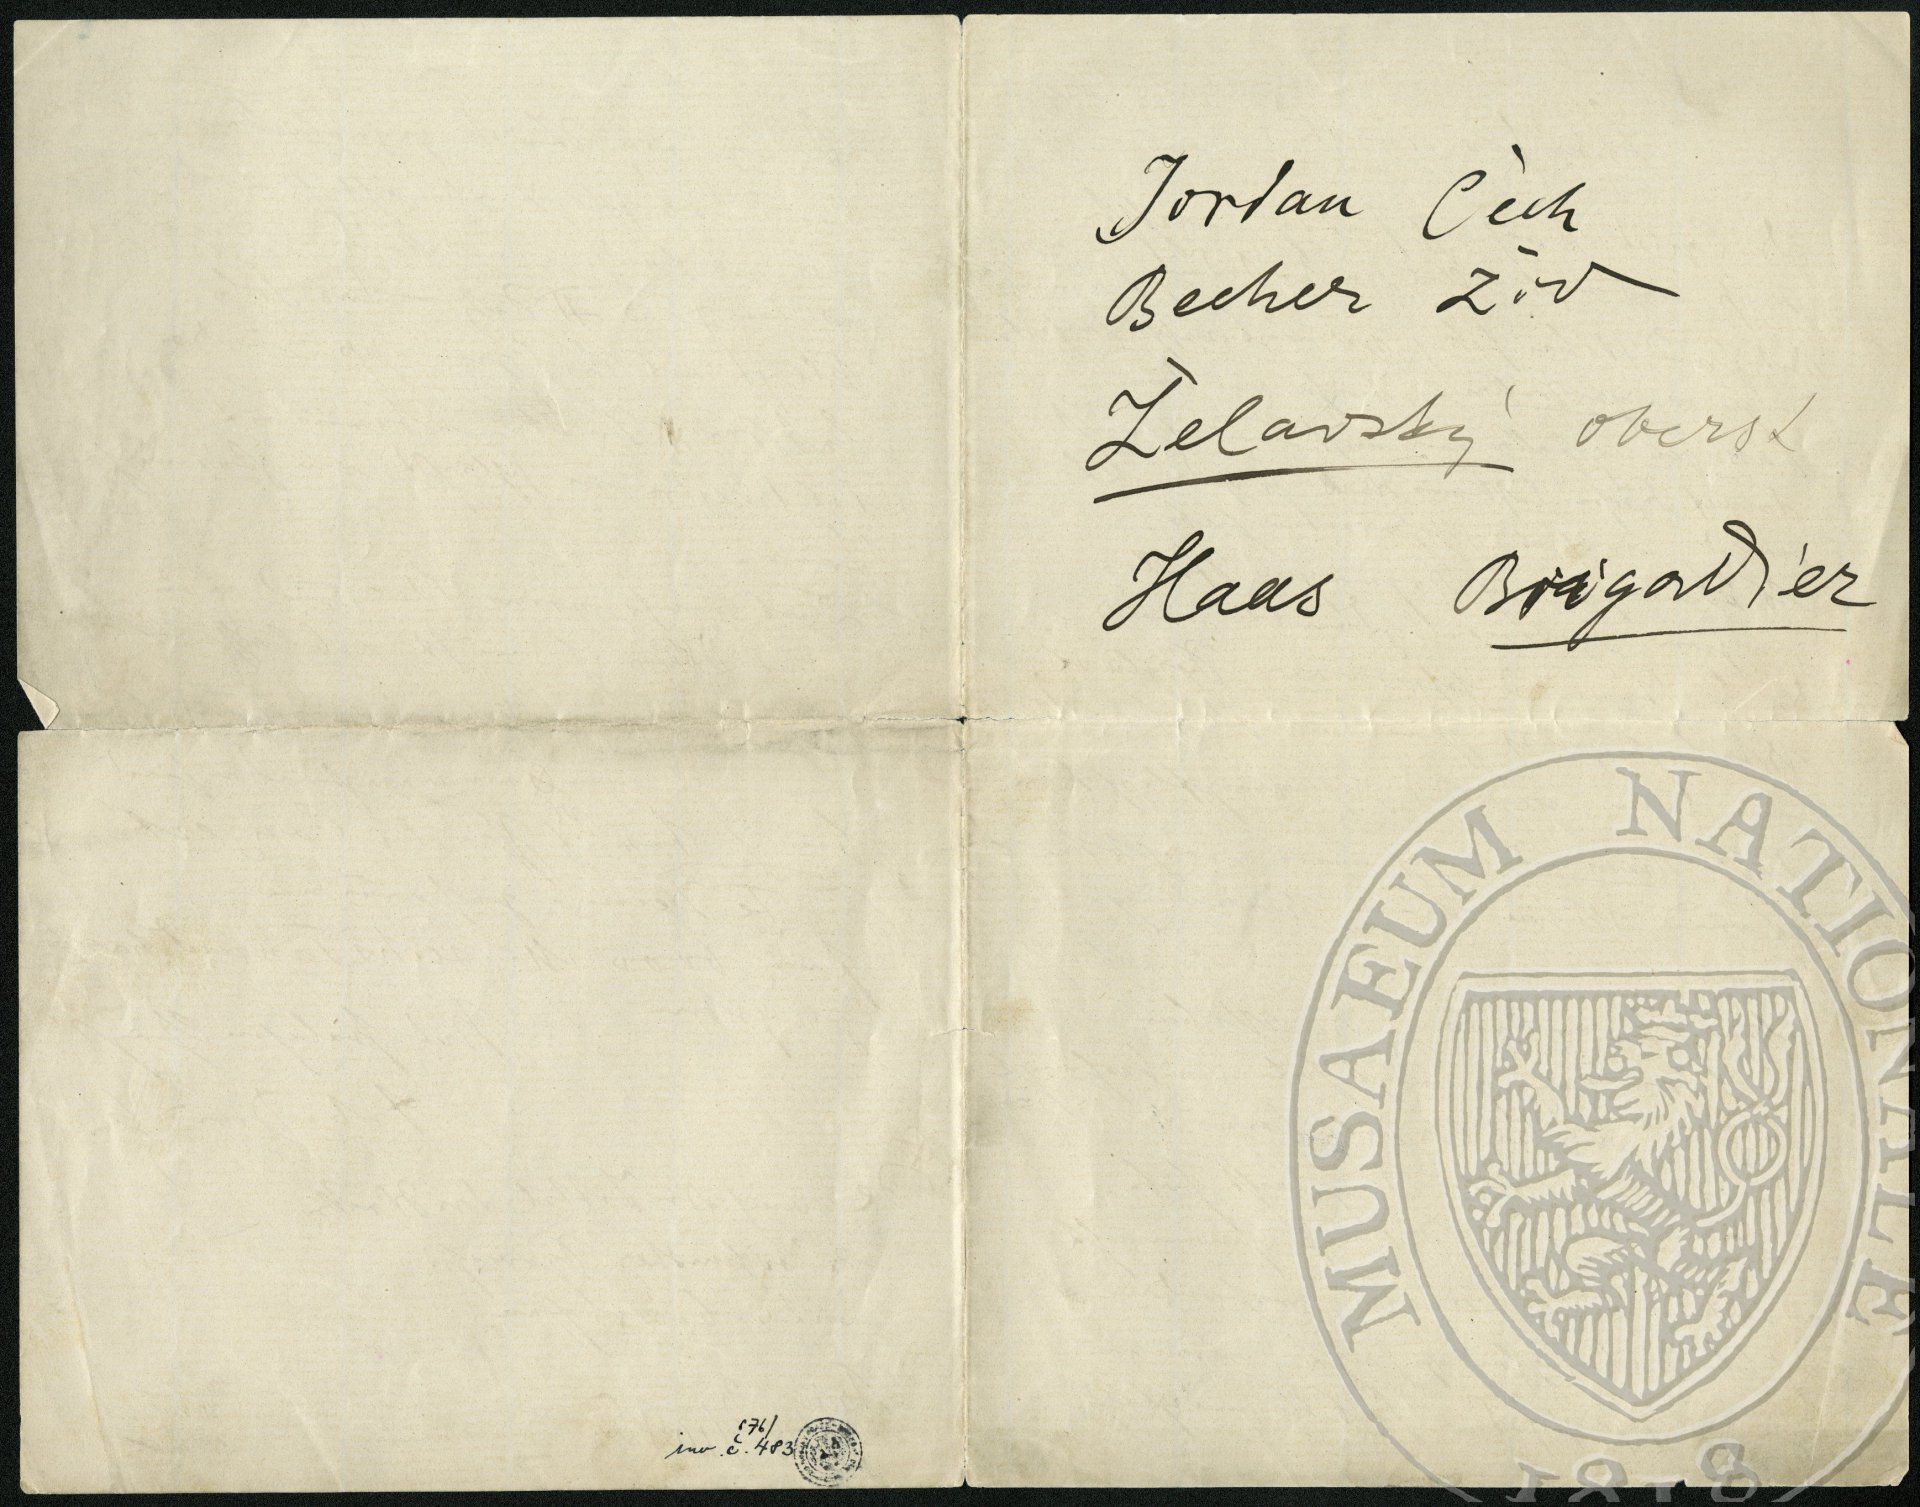 Jordan Čech
Becher Žid
Želavský oberst
Haas Brigadier
(76/
inv. č. 483
MUSAEUM NATIONALE
1818